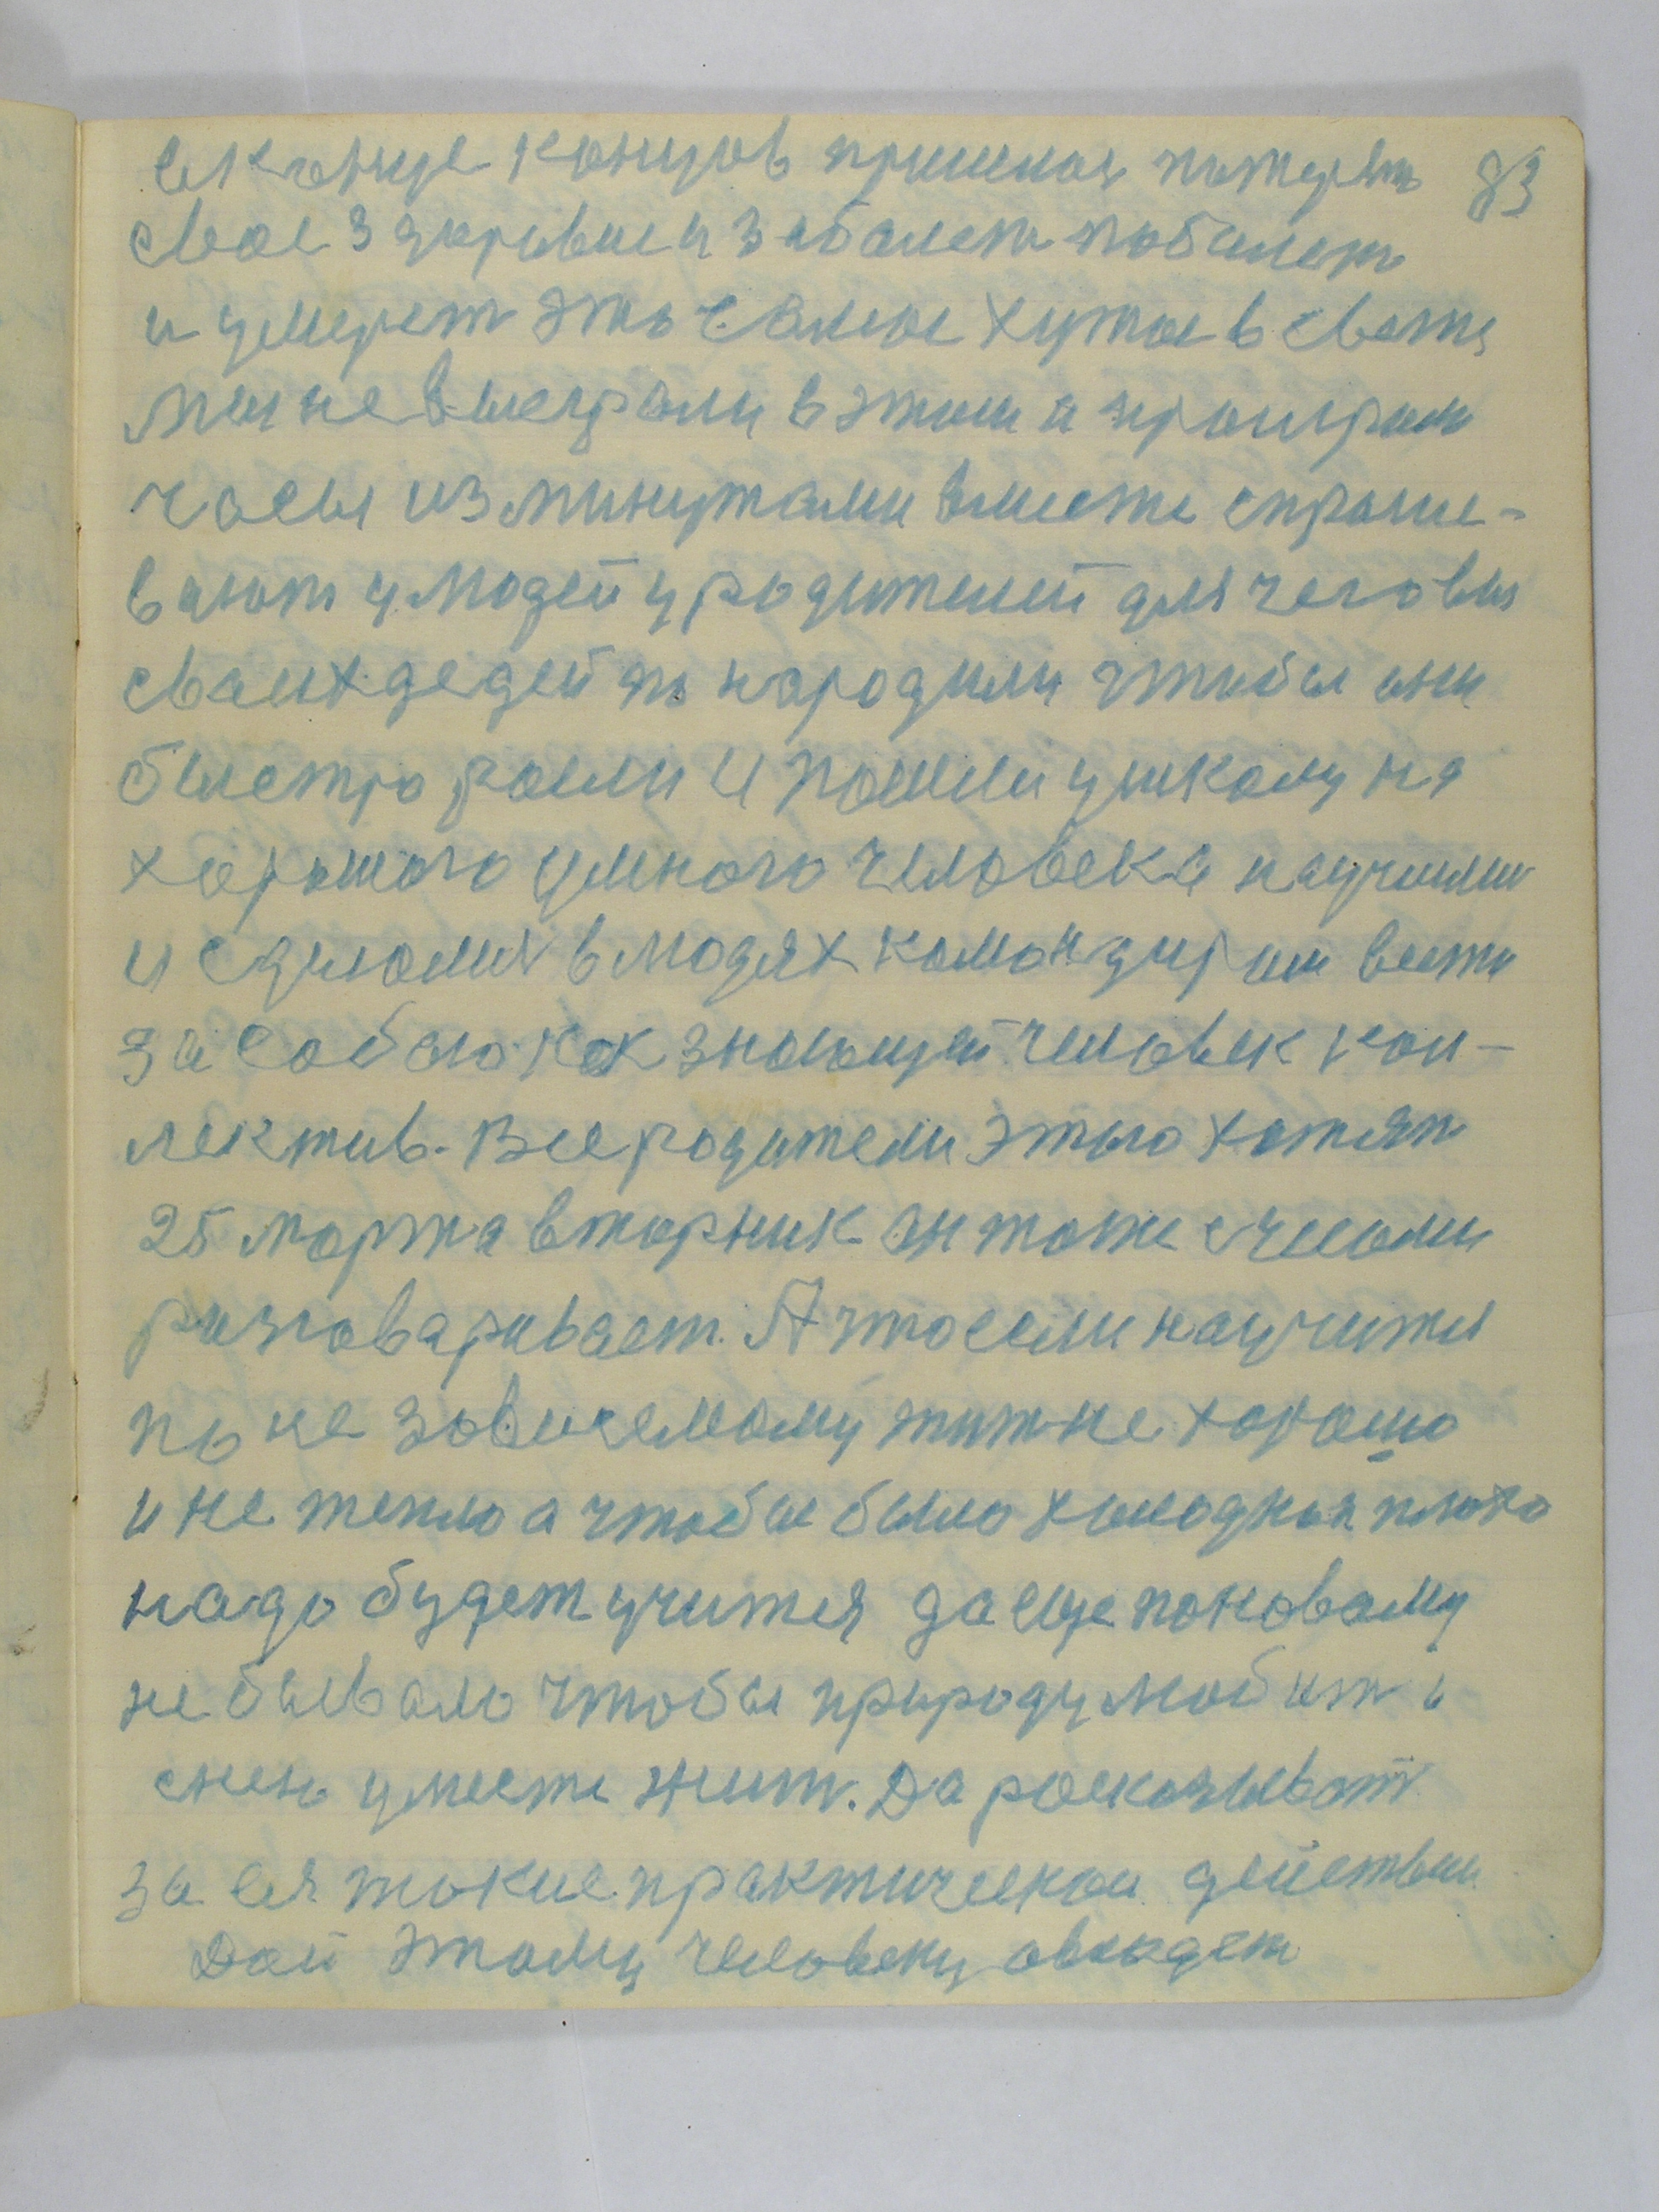 вконце концов пришлося потерять 83
свое здоровие и заболеть поболеть
и умереть это самое хужое в свете
мы не выеграли в этом а проиграли
часы из минутами вместе спраше-
вают у людей у родителей для чего вы
своих дедей то народили чтобы они
быстро росли и пошли у школу на
хорошого умного человека научили
и сделался в людях командиром вести
за собою как знающей человек кол-
лектив. Все родители этого хотят
25 марта вторник он тоже с числами
разговаривает. А что если научится
по не зависемому жить не хорошо
и не тепло а чтобы было холодно и плохо
надо будет учится да еще поновому
не бывало чтобы природу любить и
с нею уместе жить. Да расказывать
за ея такие практическои действии
Дай этому человеку овладеть